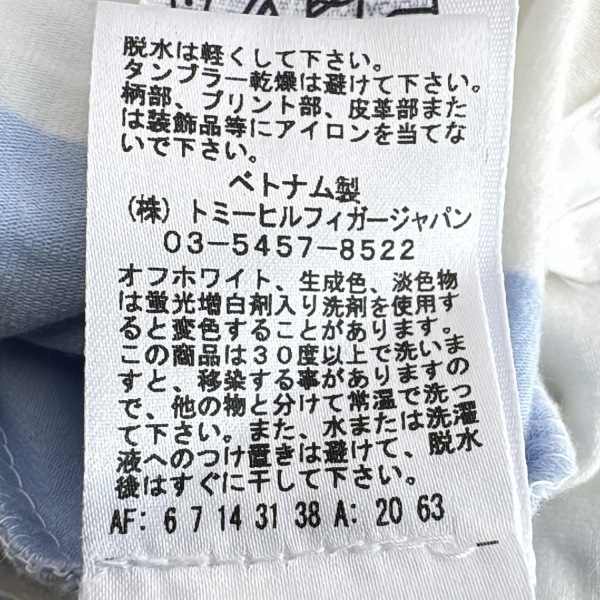 脱水は軽くして下さい。
タンブラー乾燥は避けて下さい。
柄部、プリント部、皮革部また
は装飾品等にアイロンを当てな
いで下さい。
ベトナム製
(株) トミーヒルフィガージャパン
03-5457-8522
オフホワイト、生成色、淡色物
は蛍光増白剤入り洗剤を使用す
ると変色することがあります。
この商品は30度以上で洗いま
すと、移染する事がありますの
で、他の物と分けて常温で洗っ
て下さい。また、水または洗濯
液へのつけ置きは避けて、脱水
後はすぐに干して下さい。
AF: 6 7 14 31 38 A: 20 63